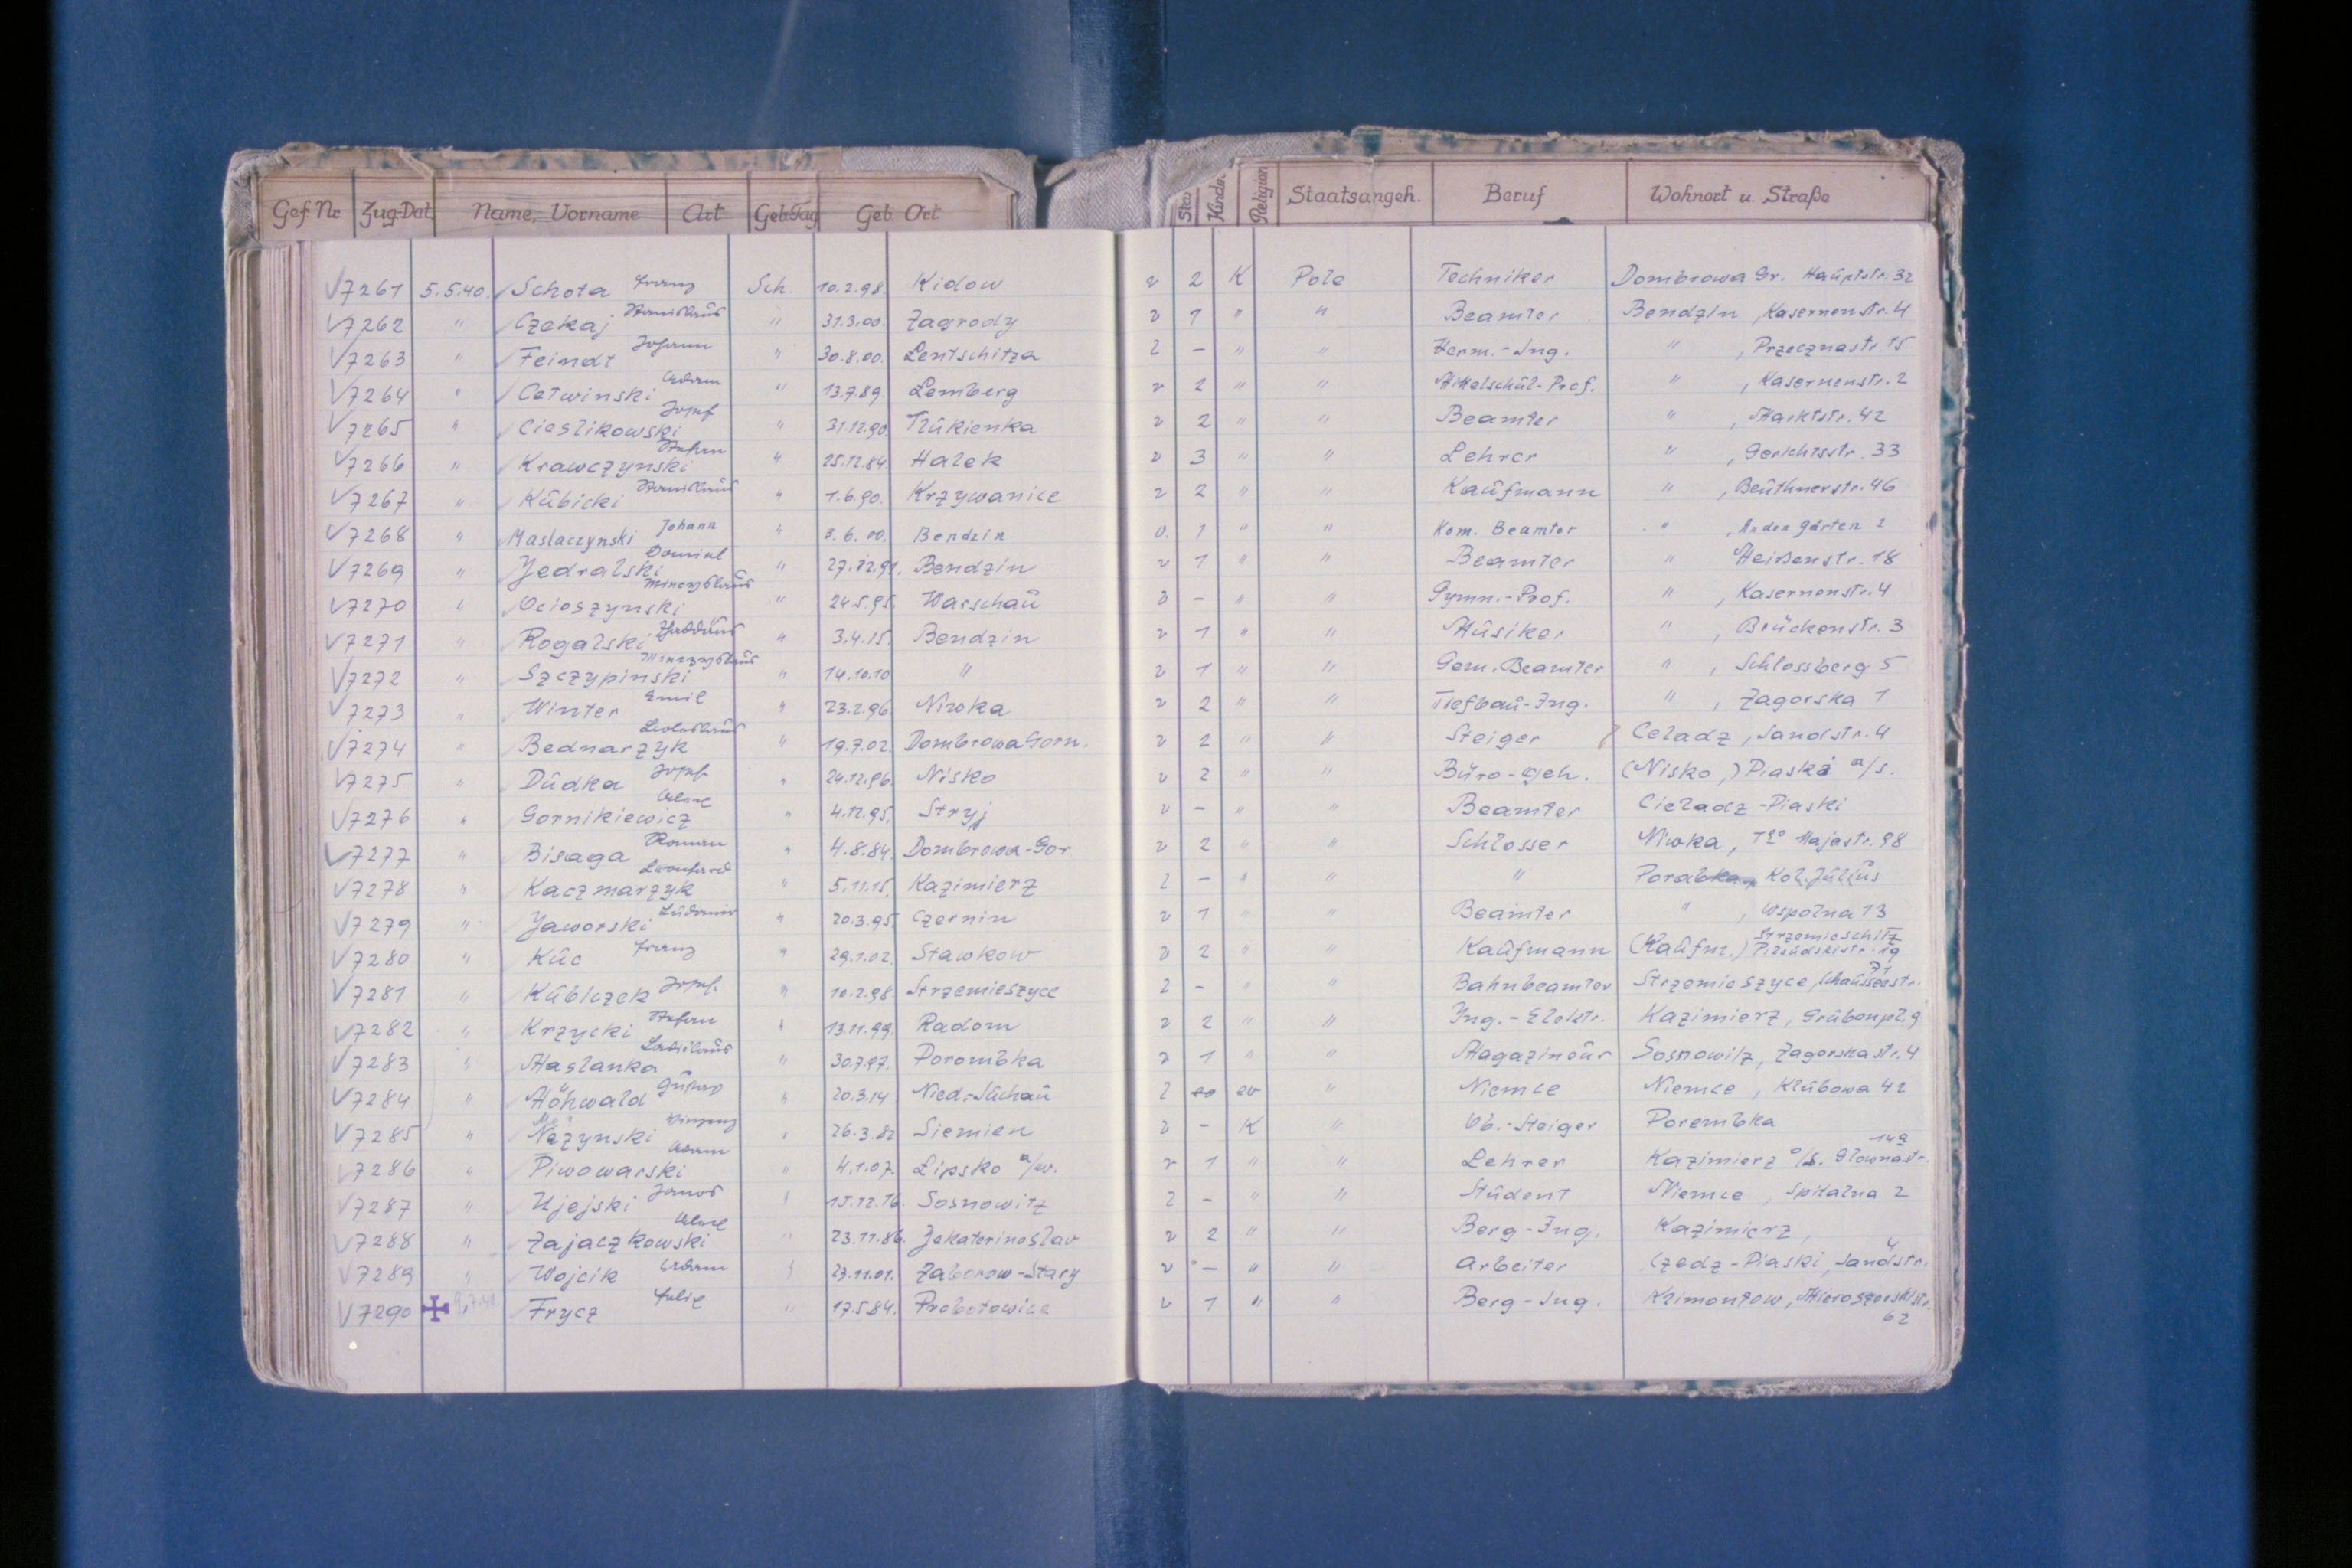 Gef. Nr Zug-Dat. Name, Vorname Art Geb.Tag Geb. Ort Kinder Religion Staatsangeh. Beruf Wohnort u. Straße
7261 5.5.40. Schota Franz Sch. 10.2.98 Kidow v 2 K Pole Techniker Dombrowa Gr. Hauptstr. 32
7262 " Czekaj Stanislaus " 31.3.00. Zagrody v 1 " " Beamter Bendzin, Kasernenstr. 4
7263 " Feindt Johann " 30.8.00. Lentschitza l - " " Herm.-Ing. " , Przecznastr. 15
7264 " Cetwinski Adam " 13.7.89. Lemberg v 2 " " Mittelschul-Prof. " , Kasernenstr. 2
7265 " Cieslikowski Josef " 31.12.90. v 2 " " Beamter " , Marktstr. 42
7266 " Krawczynski Stefan " 25.12.84. Halek v 3 " " Lehrer " , Gerichtsstr. 33
7267 " Kubicki Stanislaus " 1.6.90. Krzywanice v 2 " " Kaufmann " , Beuthnerstr. 46
7268 " Maslaczynski Johann " 3.6.00. Bendzin v. 1 " " Kom. Beamter " , An den Gärten 2
7269 " Jedralski Daniel " 27.12.91. Bendzin v 1 " " Beamter " 18
7270 " Ocioszynski Mieczyslaus " 24.5.95. Warschau v - " " Gymn.-Prof. " , Kasernenstr. 4
7271 " Rogalski Thaddäus " 3.4.15. Bendzin v 1 " " Musiker " , Brückenstr. 3
7272 " Szczypinski Mieczyslaus " 14.10.10 " v 1 " " Gem. Beamter " , Schlossberg 5
7273 " Winter Emil " 23.2.96. Niwka v 2 " " Tiefbau-Ing. " , Zagorska 1
7274 " Bednarzyk Boleslaus " 19.7.02. Dombrowa Gorn. v 2 " " Steiger Celadz, Sandstr. 4
7275 " Dudka Josef " 24.12.96. Nisko v 2 " " Büro-Geh. (Nisko,) Piaski a/s.
7276 " Gornikiewicz Karl " 4.12.95. Stryj v - " " Beamter Cieladz-Piaski
7277 " Bisaga Roman " 4.8.84. Dombrowa-Gor v 2 " " Schlosser Niwka, 1go Majastr. 98
7278 " Kaczmarzyk Leonhard " 5.11.15. Kazimierz l - " " " Porabka, Kol. Julius
7279 " Jaworski Ludomir " 20.3.95. Czernin v 1 " " Beamter " , Wspolna 13
7280 " Kuc Franz " 29.1.02. Stawkow v 2 " " Kaufmann (Kaufm.) Strzemieschitz Pilsudskistr. 19
7281 " Kublczek Josef " 10.2.98 Strzemieszyce l - " " Bahnbeamter Strzemieszyce, Chausseestr. 71
7282 " Krzycki Stefan " 13.11.99. Radom v 2 " " Ing.-Elektr. Kazimierz, Grubenpl. 9
7283 " Maslanka Ladislaus " 30.7.97. Porombka v 1 " " Magazineur Sosnowitz, Zagorskastr. 4
7284 " Höhwald Gustav " 20.3.14 Nied.-Suchau l ev " Niemce Niemce, Klubowa 42
7285 " Nezynski Vinzenz " 26.3.82 Siemien v - K " Ob.-Steiger Porembka
7286 " Piwowarski Adam " 4.1.07. Lipsko a/w. v 1 " " Lehrer Kazimierz o/S. Glownastr. 149
7287 " Ujejski Janos " 15.12.16. Sosnowitz l - " " Student Niemce, Spitalna 2
7288 " Zajaczkowski Karl " 23.11.86. Jekaterinoslav v 2 " " Berg-Ing. Kazimierz,
7289 " Wojcik Adam " 23.11.01. Zaborow-Stary v - " " Arbeiter Czedz-Piaski, Sandstr. 4
7290 Frycz Felix " 17.5.84. Probotowice v 1 " " Berg-Ing. Klimontow, 62